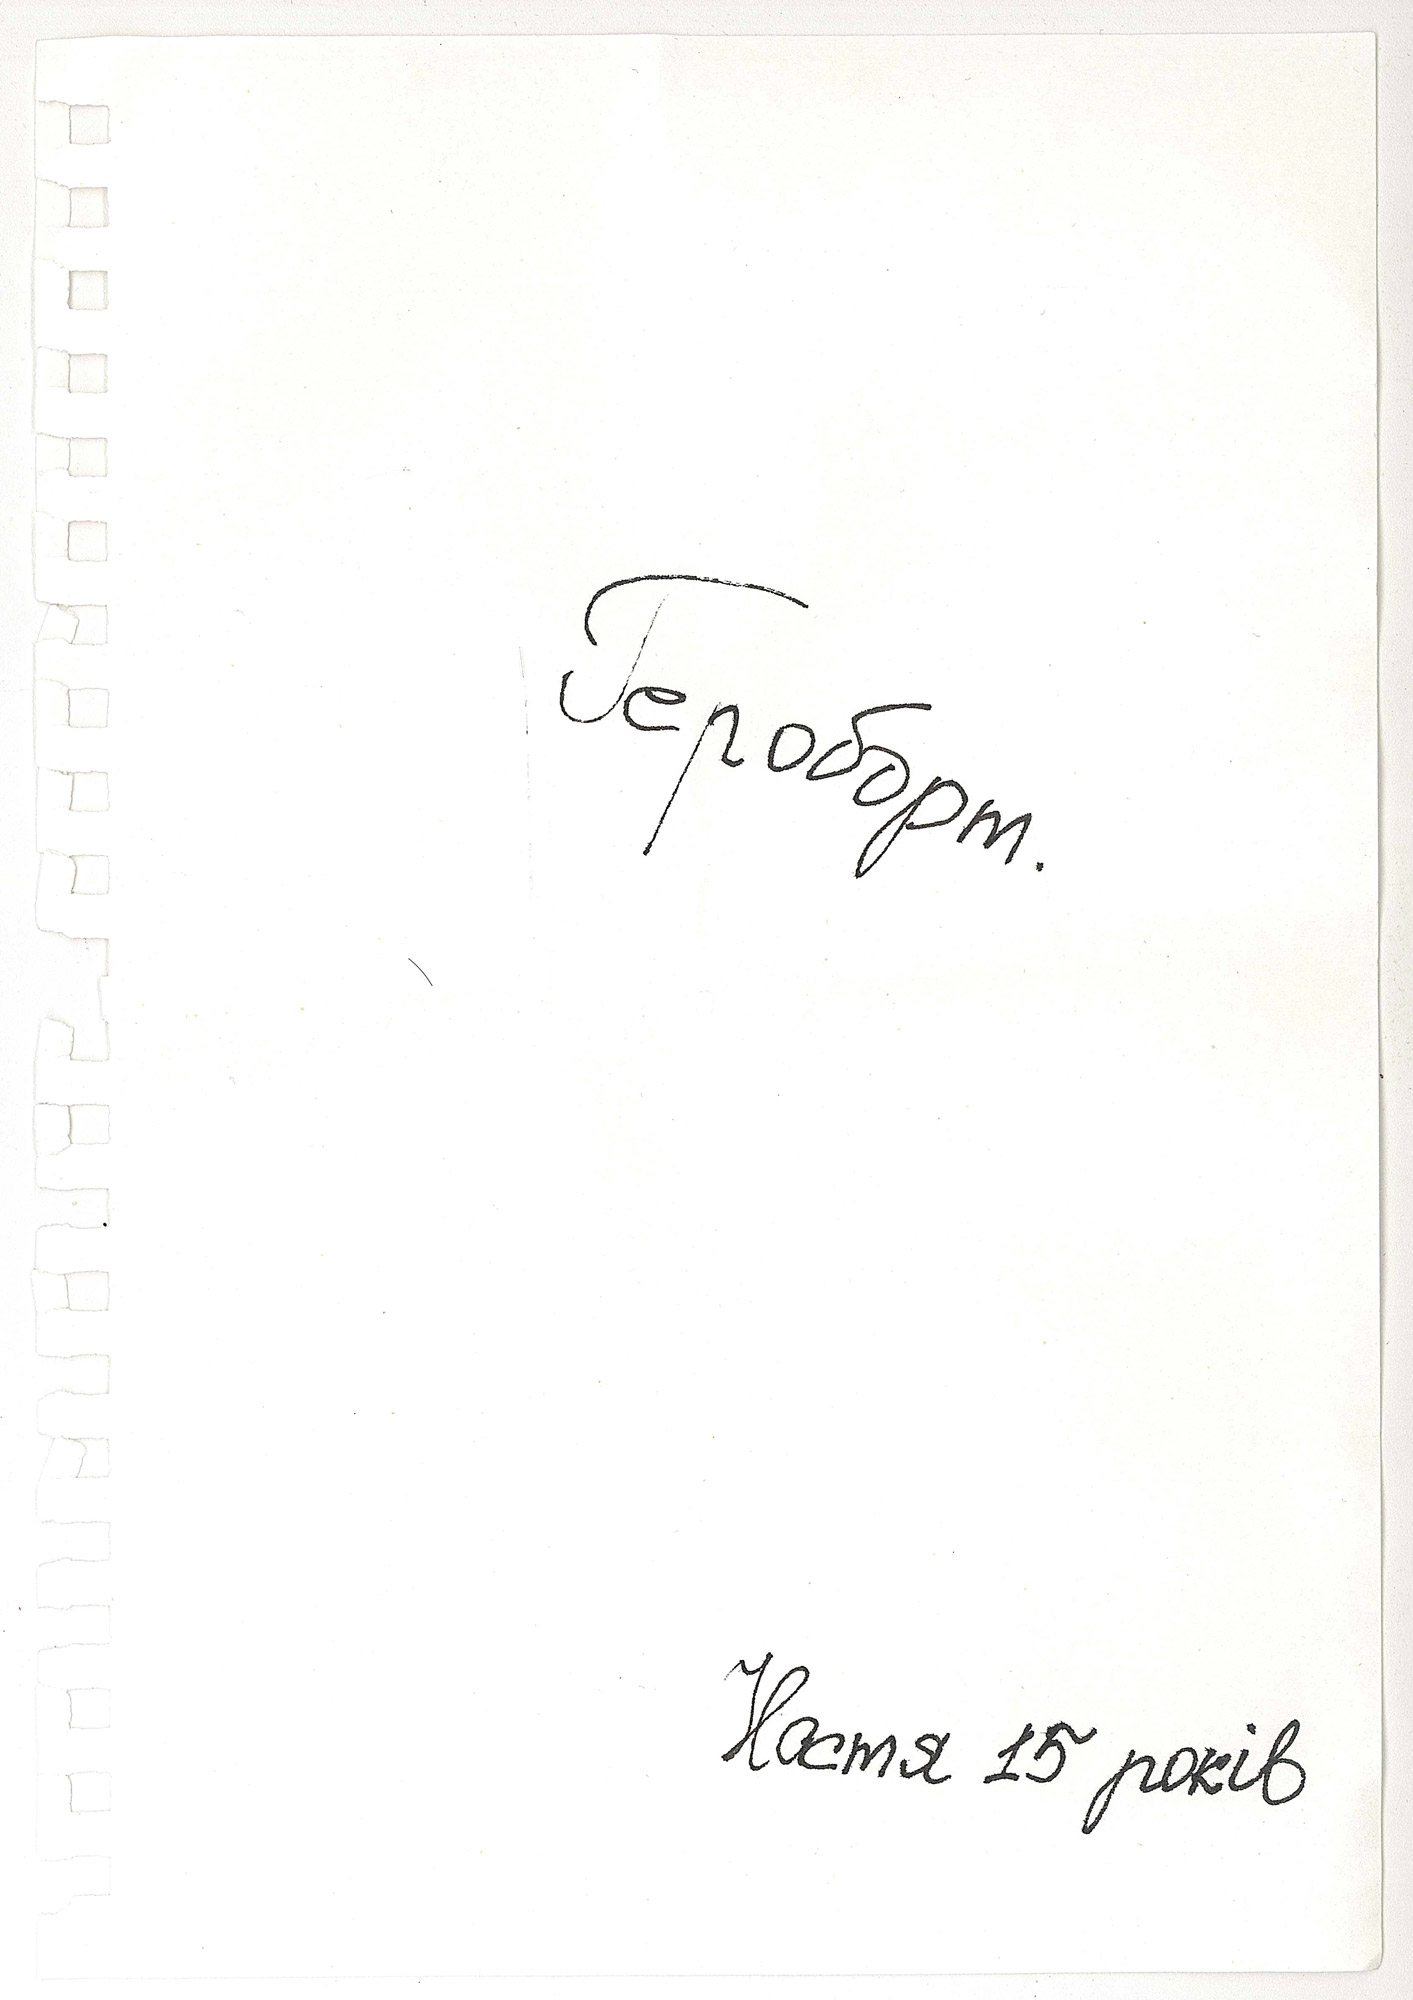 Героборт.
Настя 15 років